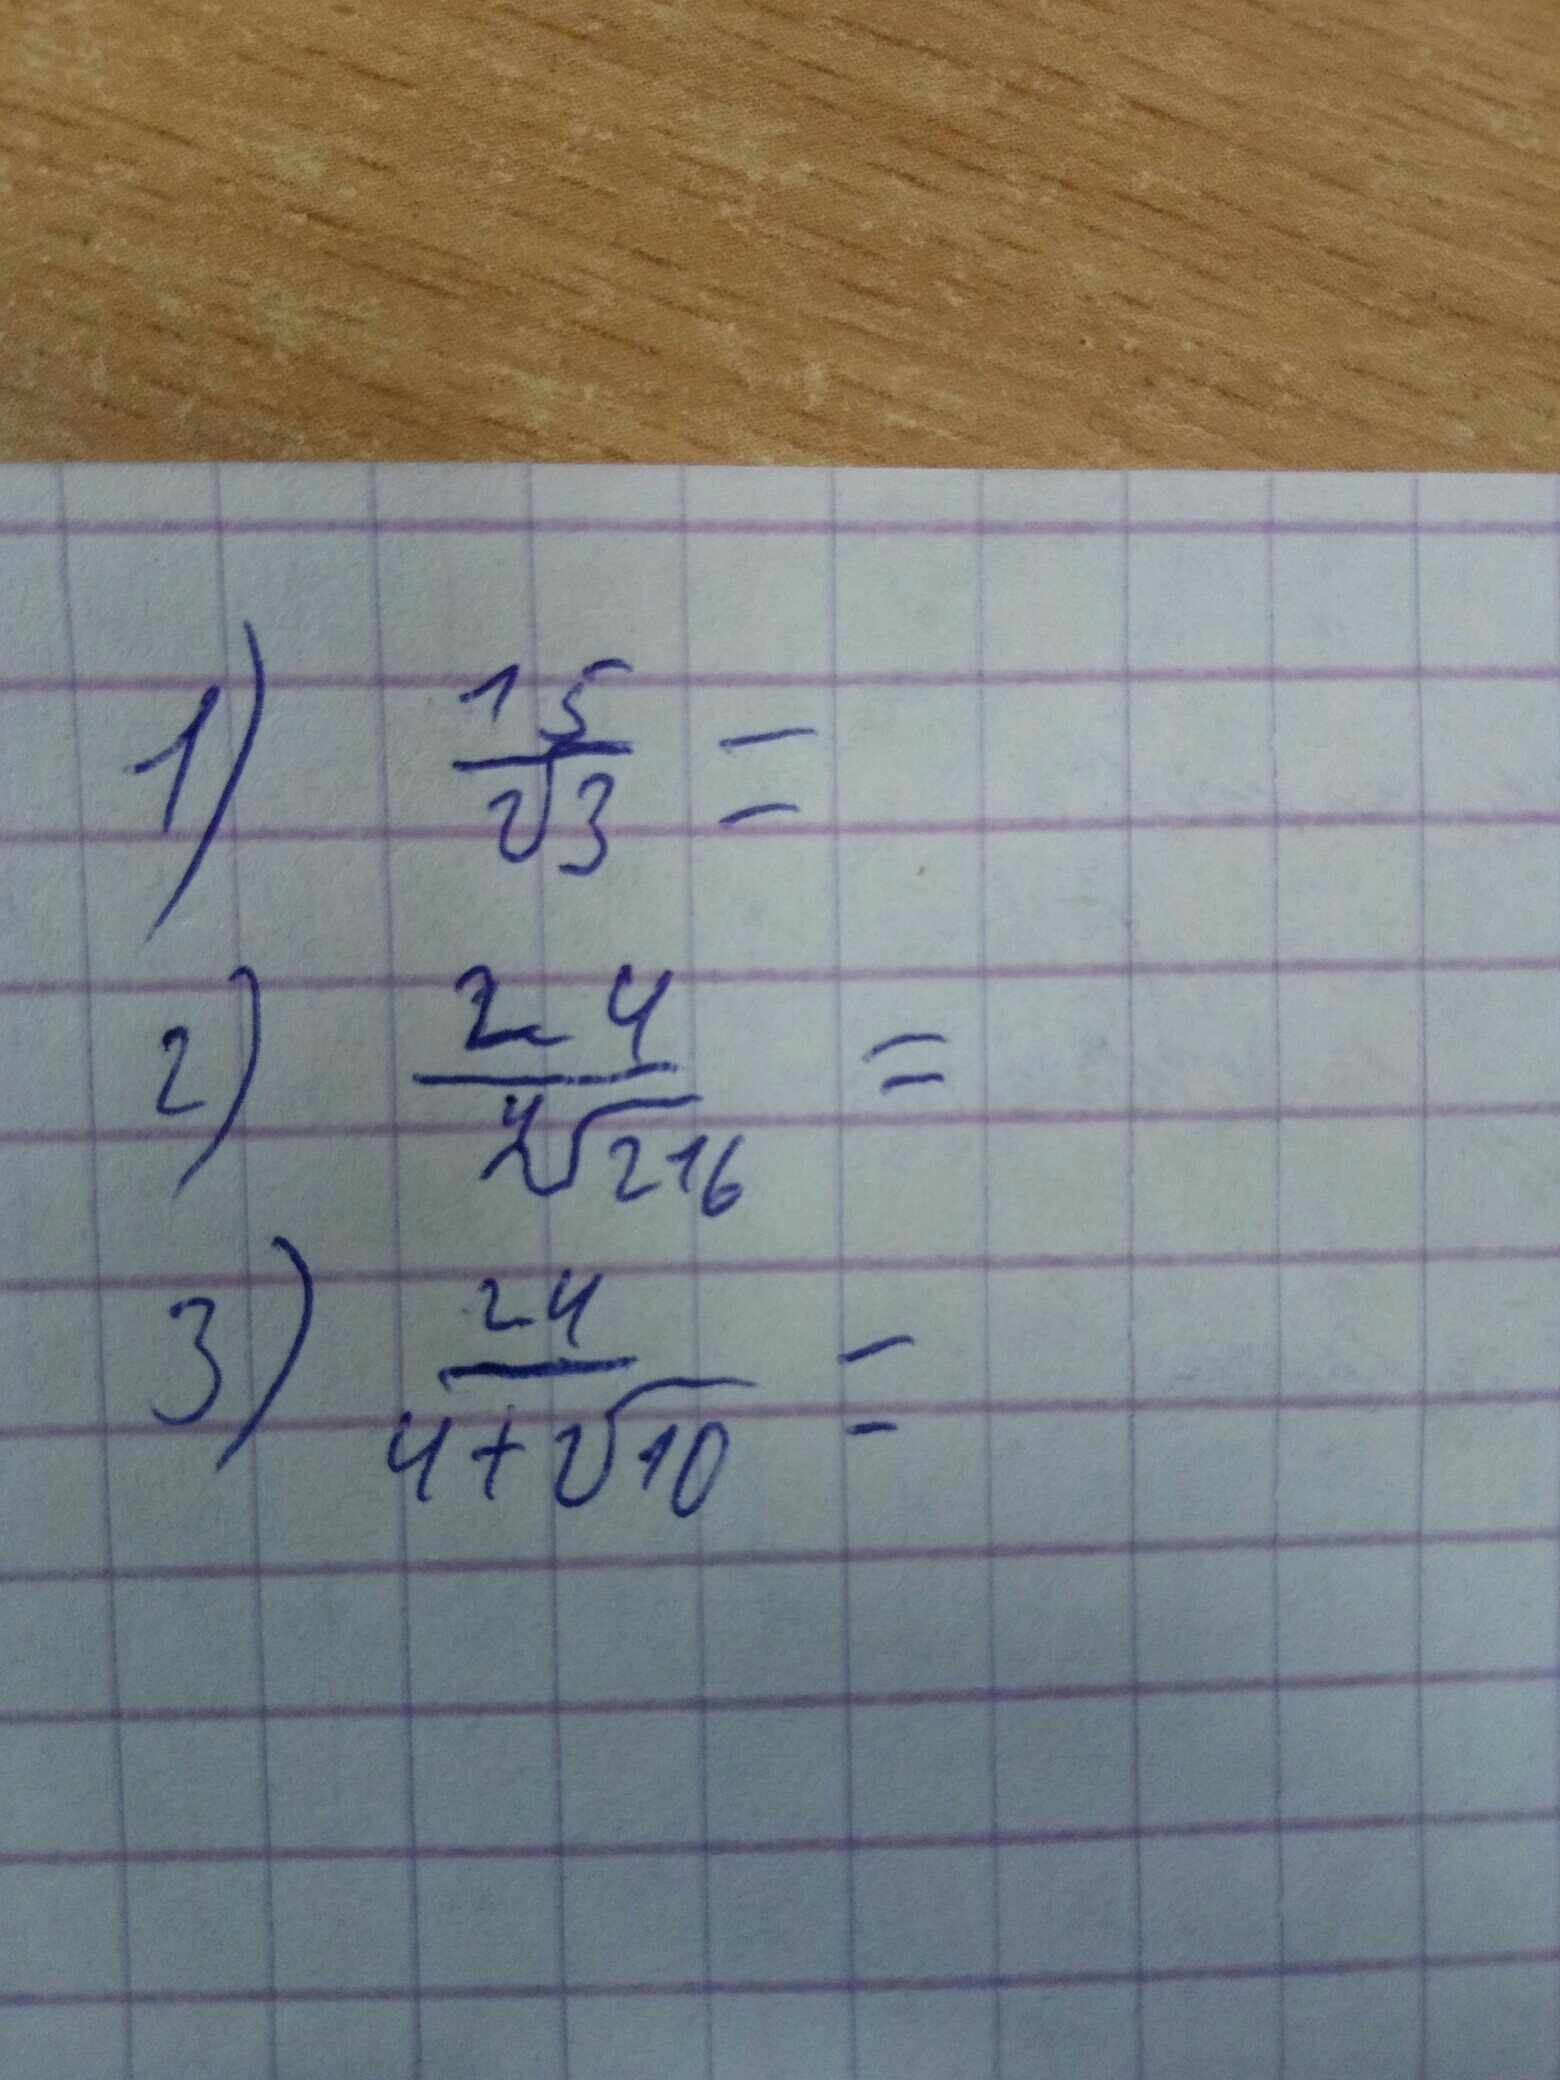 1) 15/√3 =
2) 24/⁴√216 =
3) 24/4+√10 =